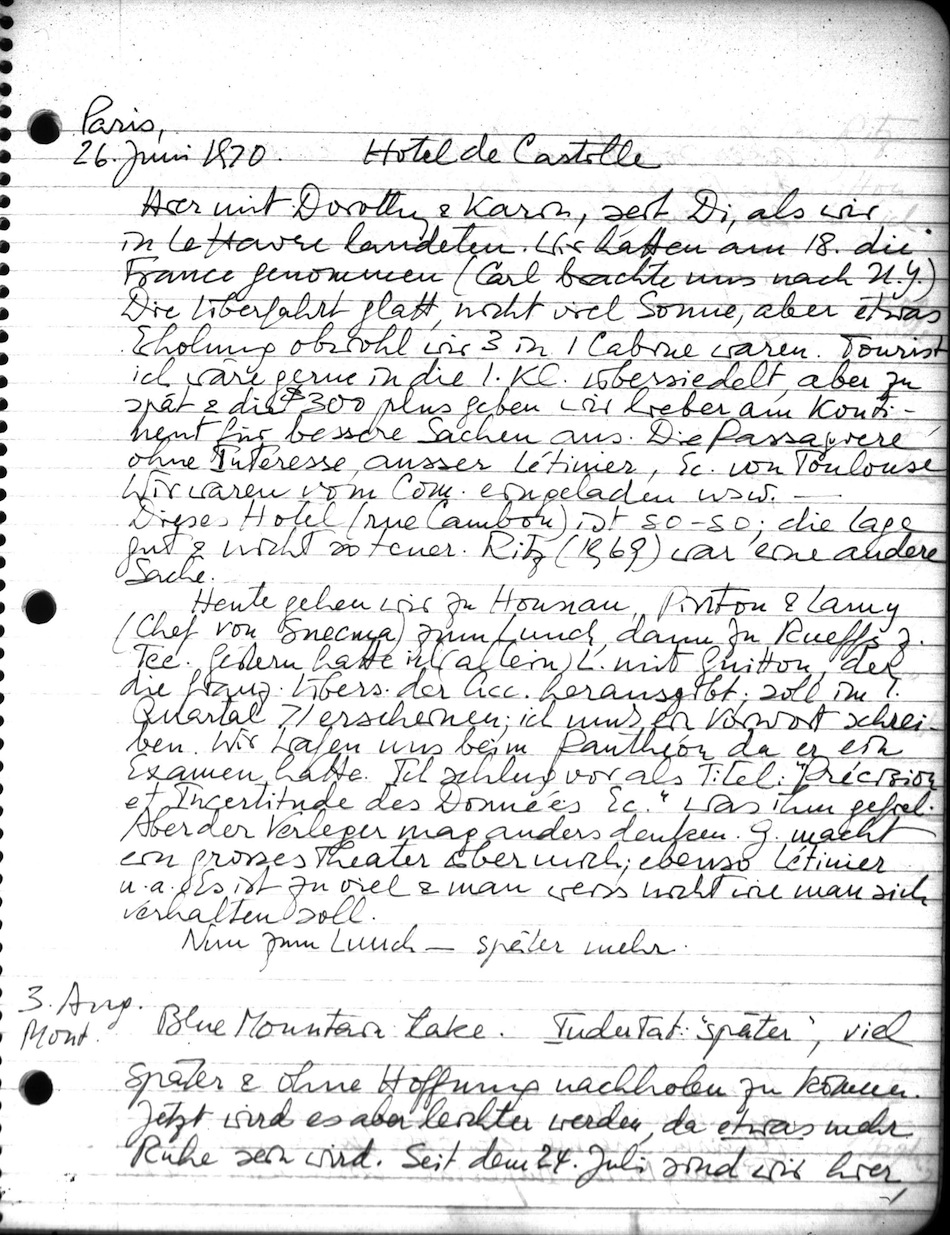 Paris,
26. Juni 1970. Hotel de Castille
Hier mit Dorothy & Karin, seit Di, als wir
in Le Havre landeten. Wir hatten am 18. die
France genommen (Carl brachte uns nach N.Y.)
Die Überfahrt glatt, nicht viel Sonne, aber etwas
Erholung obwohl wir 3 in 1 Cabine waren. Tourist
ich wäre gerne in die 1. Kl. übersiedelt, aber zu
spät & die $300 plus geben wir lieber am Konti-
nent für bessere Sachen aus. Die Passagiere
ohne Interesse, ausser Létinier, Ec. von Toulouse
Wir waren vom Com. eingeladen usw. —
Dieses Hotel (rue Cambon) ist so-so; die Lage
gut & nicht so teuer. Ritz (1969) war eine andere
Sache.
Heute gehen wir zu Hosnau, Pinton & Lamy
(Chef von Snecma) zum Lunch, dann zu Rueffs z.
Tee. Gestern hatte ich (allein) L. mit Guitton, der
die franz. Übers. der Acc. herausgibt; soll im 1.
Quartal 71 erscheinen; ich muss ein Vorwort schrei-
ben. Wir trafen uns beim Pantheon da er ein
Examen hatte. Ich schlug vor als Titel: "Précision
et Incertitude des Données Ec." was ihm gefiel.
Aber der Verleger mag anders denken. G. macht
ein grosses Theater über mich; ebenso Létinier
u.a. Es ist zu viel & man weiss nicht wie man sich
verhalten soll.
Nun zum Lunch — später mehr.
3. Aug.
Mont. Blue Mountain Lake. In der Tat: "später", viel
später & ohne Hoffnung nachholen zu können.
Jetzt wird es aber leichter werden, da etwas mehr
Ruhe sein wird. Seit dem 24. Juli sind wir hier